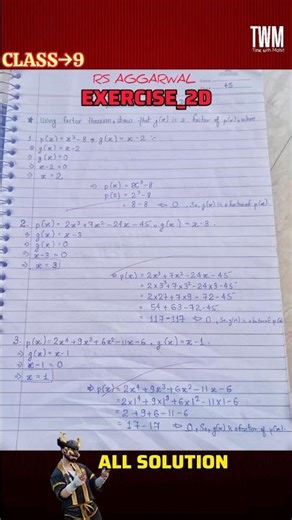 TWM
Time with Mohit
CLASS→9
RS AGGARWAL
EXERCISE_2D
* Using factor theorem, show that g(x) is a factor of p(x), where
1. p(x) = x³-8 & g(x) = x-2 :-
⇒ g(x) = x-2
⇒ g(x) = 0
⇒ x-2 = 0
⇒ x = 2.
⇒ p(x) = x³-8
p(2) = 2³-8
= 8-8 ⇔ 0, So, g(x) is a factor of p(x).
2. p(x) = 2x³+7x²-24x-45, g(x) = x-3.
⇒ g(x) = x-3
⇒ g(x) = 0
⇒ x-3 = 0
⇒ x = 3
⇒ p(x) = 2x³+7x²-24x-45
= 2×3³+7×3²-24×3-45
= 2×27+7×9-72-45
= 54+63-72-45
= 117-117 ⇔ 0, So, g(x) is a factor of p(x).
3. p(x) = 2x⁴+9x³+6x²-11x-6, g(x) = x-1.
⇒ g(x) = x-1
⇒ x-1 = 0
⇒ x = 1
⇒ p(x) = 2x⁴+9x³+6x²-11x-6
= 2×1⁴+9×1³+6×1²-11×1-6
= 2+9+6-11-6
= 17-17 ⇔ 0, So, g(x) is a fraction of p(x).
ALL SOLUTION